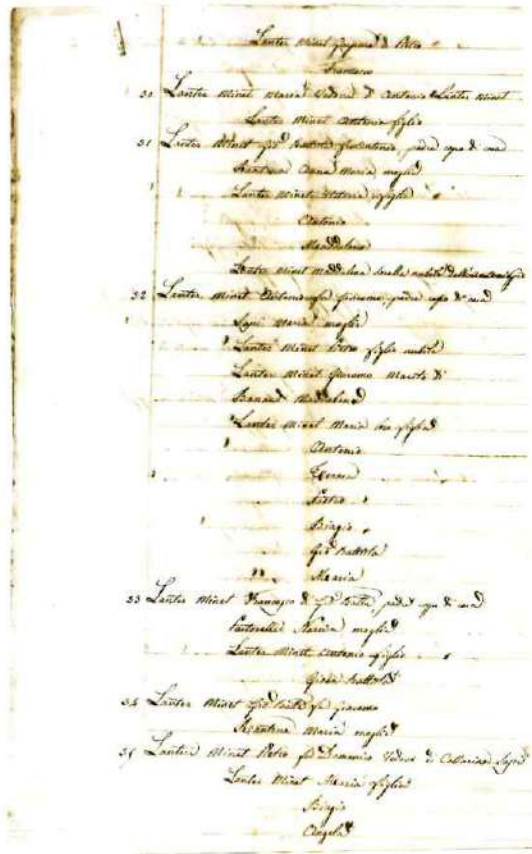 Lanter Minet Giuseppe di Pietro
Francesco
30 Lanter Minet Maria Vedova di Antonio Lanter Minet
Lanter Minet Antonio figlio
31 Lanter Minet Gio Battista fiorentino, padre capo di casa
Anna Maria moglie
Lanter Minet figlia
Antonio
Maddalena
Lanter Minet Maddalena sorella nubile
32 Lanter Minet Antonio fu Giacomo, padre capo di casa
Maria moglie
Lanter Minet Pietro figlio nubile
Lanter Minet Giacomo Marito di
Maddalena
Lanter Minet Maria figlia
Antonio
Teresa
Pietro
Biagio
Gio Battista
Maria
33 Lanter Minet Francesco di Gio Batta, padre capo di casa
Pastorelli Maria moglie
Lanter Minet Antonio figlio
Giovà Battista
34 Lanter Minet Gio Batta fu Giacomo
Maria moglie
35 Lanter Minet Pietro fu Domenico Vedovo di Cattarina
Lanter Minet Maria figlia
Biagio
Angela